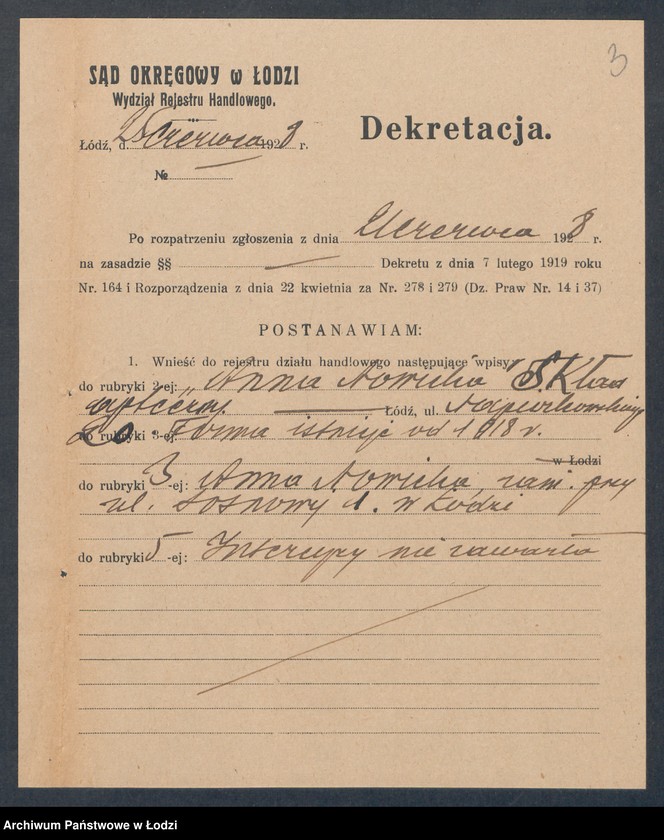 3
SĄD OKRĘGOWY w ŁODZI
Wydział Rejestru Handlowego.
Dekretacja.
Łódź, d. czerwca 1928 r.
№
Po rozpatrzeniu zgłoszenia z dnia czerwca 1928 r.
na zasadzie §§ Dekretu z dnia 7 lutego 1919 roku
Nr. 164 i Rozporządzenia z dnia 22 kwietnia za Nr. 278 i 279 (Dz. Praw Nr. 14 i 37)
POSTANAWIAM:
1. Wnieść do rejestru działu handlowego następujące wpisy:
do rubryki 2-ej: „Anna Nowicka" Skład
apteczny. Łódź, ul. Napiórkowskiego
do rubryki 3-ej: Firma istnieje od 1918 r.
w Łodzi
do rubryki 3-ej: Anna Nowicka, zam. przy
ul. Sosnowy 1. w Łodzi
do rubryki 5-ej: Intercyzy nie zawarła
Archiwum Państwowe w Łodzi